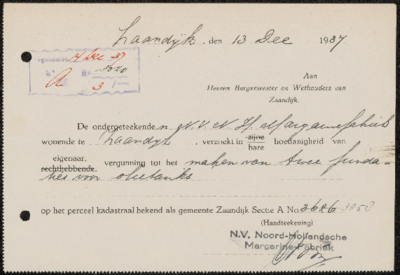 Zaandijk, den 13 Dec 1937
14 Dec '37
A
3
Aan
Heeren Burgemeester en Wethouders van
Zaandijk.
De ondergeteekende n N.V. N.H. Margarinefabriek
wonende te Zaandijk, verzoekt in zijne hoedanigheid van
hare
eigenaar,
rechthebbende, vergunning tot het maken van twee funda-
ties voor olietanks
op het perceel kadastraal bekend als gemeente Zaandijk Sectie A No 3626 3050
(Handteekening)
N.V. Noord-Hollandsche
Margarine-Fabriek